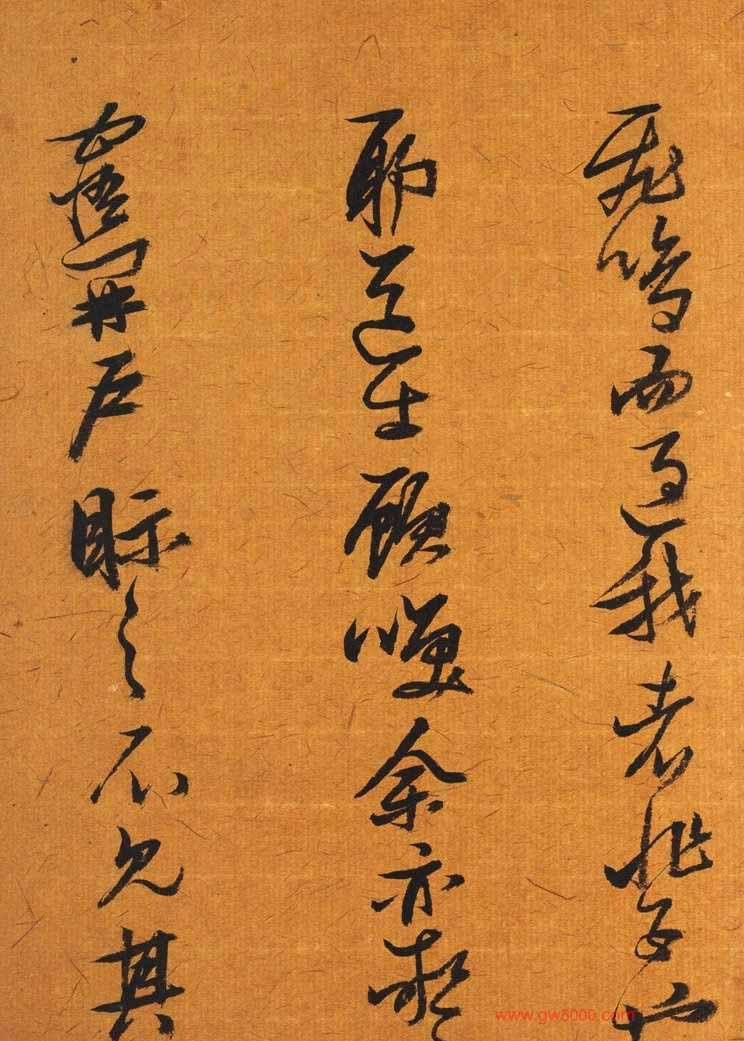 飛鳴而過我者非子也
耶道士顧咲余亦驚
寤開戶眎之不見其
www.gw8000.com